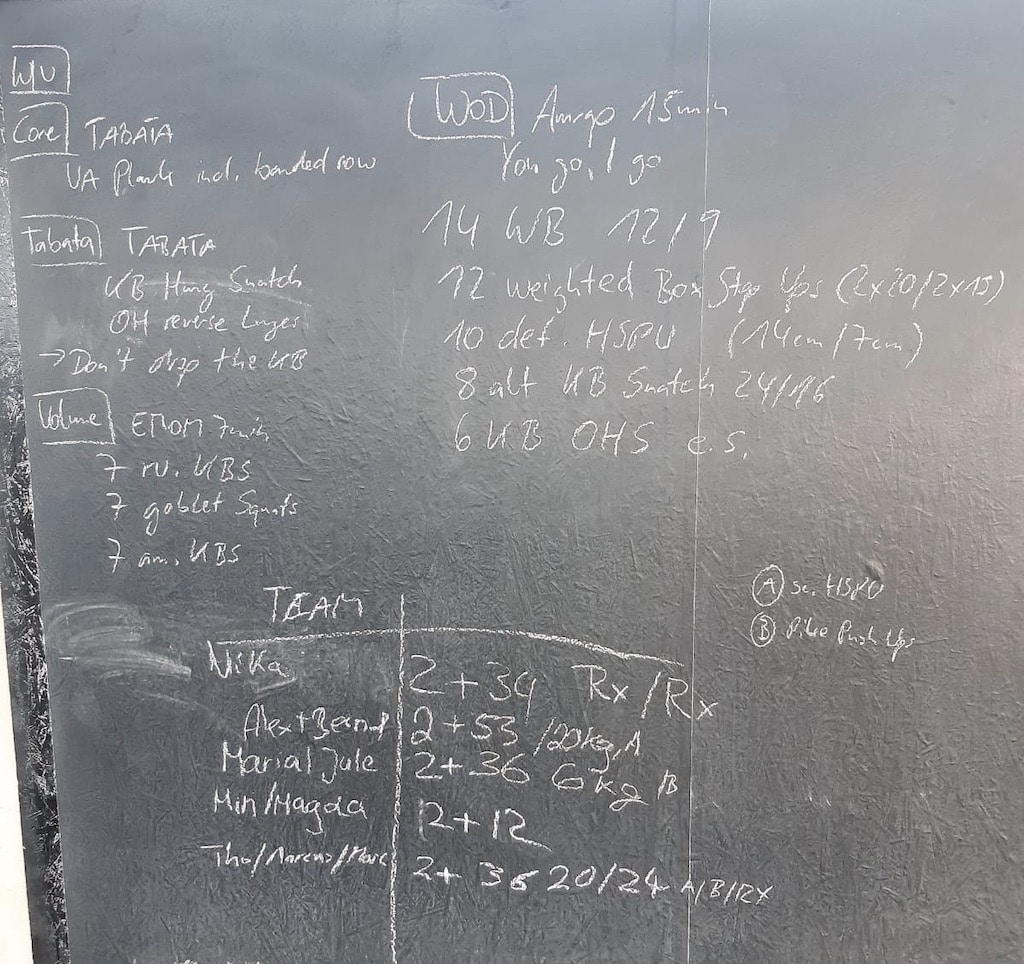 WU
Core TABATA
UA Plank incl. banded row
Tabata TABATA
KB Hang Snatch
OH reverse Lunges
→ Don't drop the KB
Volume EMOM 7min
7 ru. KBS
7 goblet Squats
7 am. KBS
WOD Amrap 15min
You go, I go
14 WB 12/9
12 weighted Box Step Ups (2x20/2x15)
10 def. HSPU (14cm/7cm)
8 alt KB Snatch 24/16
6 KB OHS e.s.
A sc. HSPU
B Pike Push Ups
TEAM
NiKa 2+34 Rx/Rx
Alex+Bernd 2+53 /20kg, A
Maria/Jule 2+36 6kg /B
Min/Magda 2+12
Tho/Marcus/Marc 2+36 20/24 A/B/RX